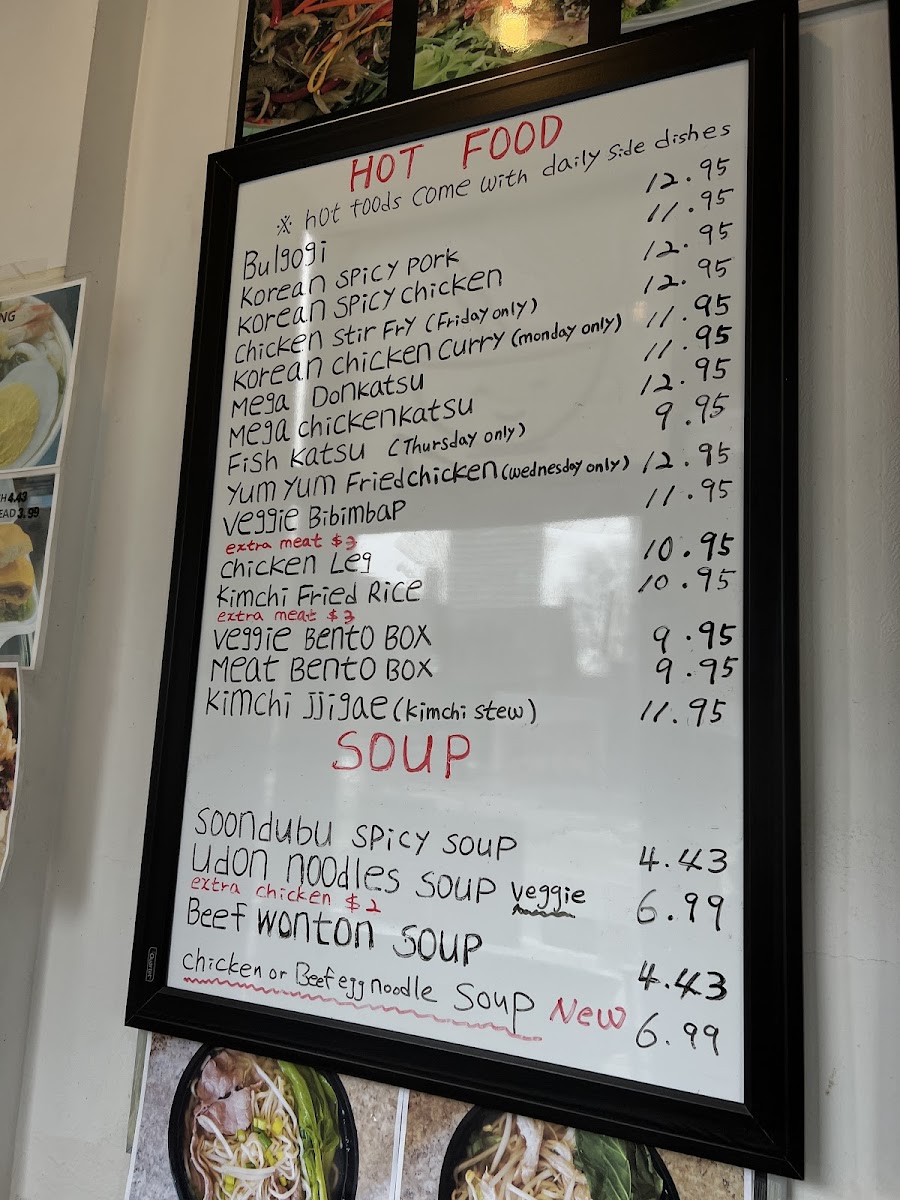 HOT FOOD
※ hot foods come with daily side dishes
Bulgogi 12.95
Korean spicy pork 11.95
Korean spicy chicken 12.95
chicken stir Fry (Friday only) 12.95
Korean chicken curry (monday only) 11.95
Mega Donkatsu 11.95
Mega chickenkatsu 12.95
Fish katsu (Thursday only) 9.95
Yum Yum Fried chicken (wednesday only) 12.95
Veggie Bibimbap 11.95
extra meat $3
chicken Leg 10.95
Kimchi Fried Rice 10.95
extra meat $3
Veggie Bento BOX 9.95
Meat Bento BOX 9.95
Kimchi jjigae (kimchi stew) 11.95
SOUP
Soondubu spicy soup 4.43
Udon noodles soup veggie 6.99
extra chicken $2
Beef wonton soup 4.43
chicken or Beef egg noodle soup New 6.99
NG
H 4.43
EAD 3.99